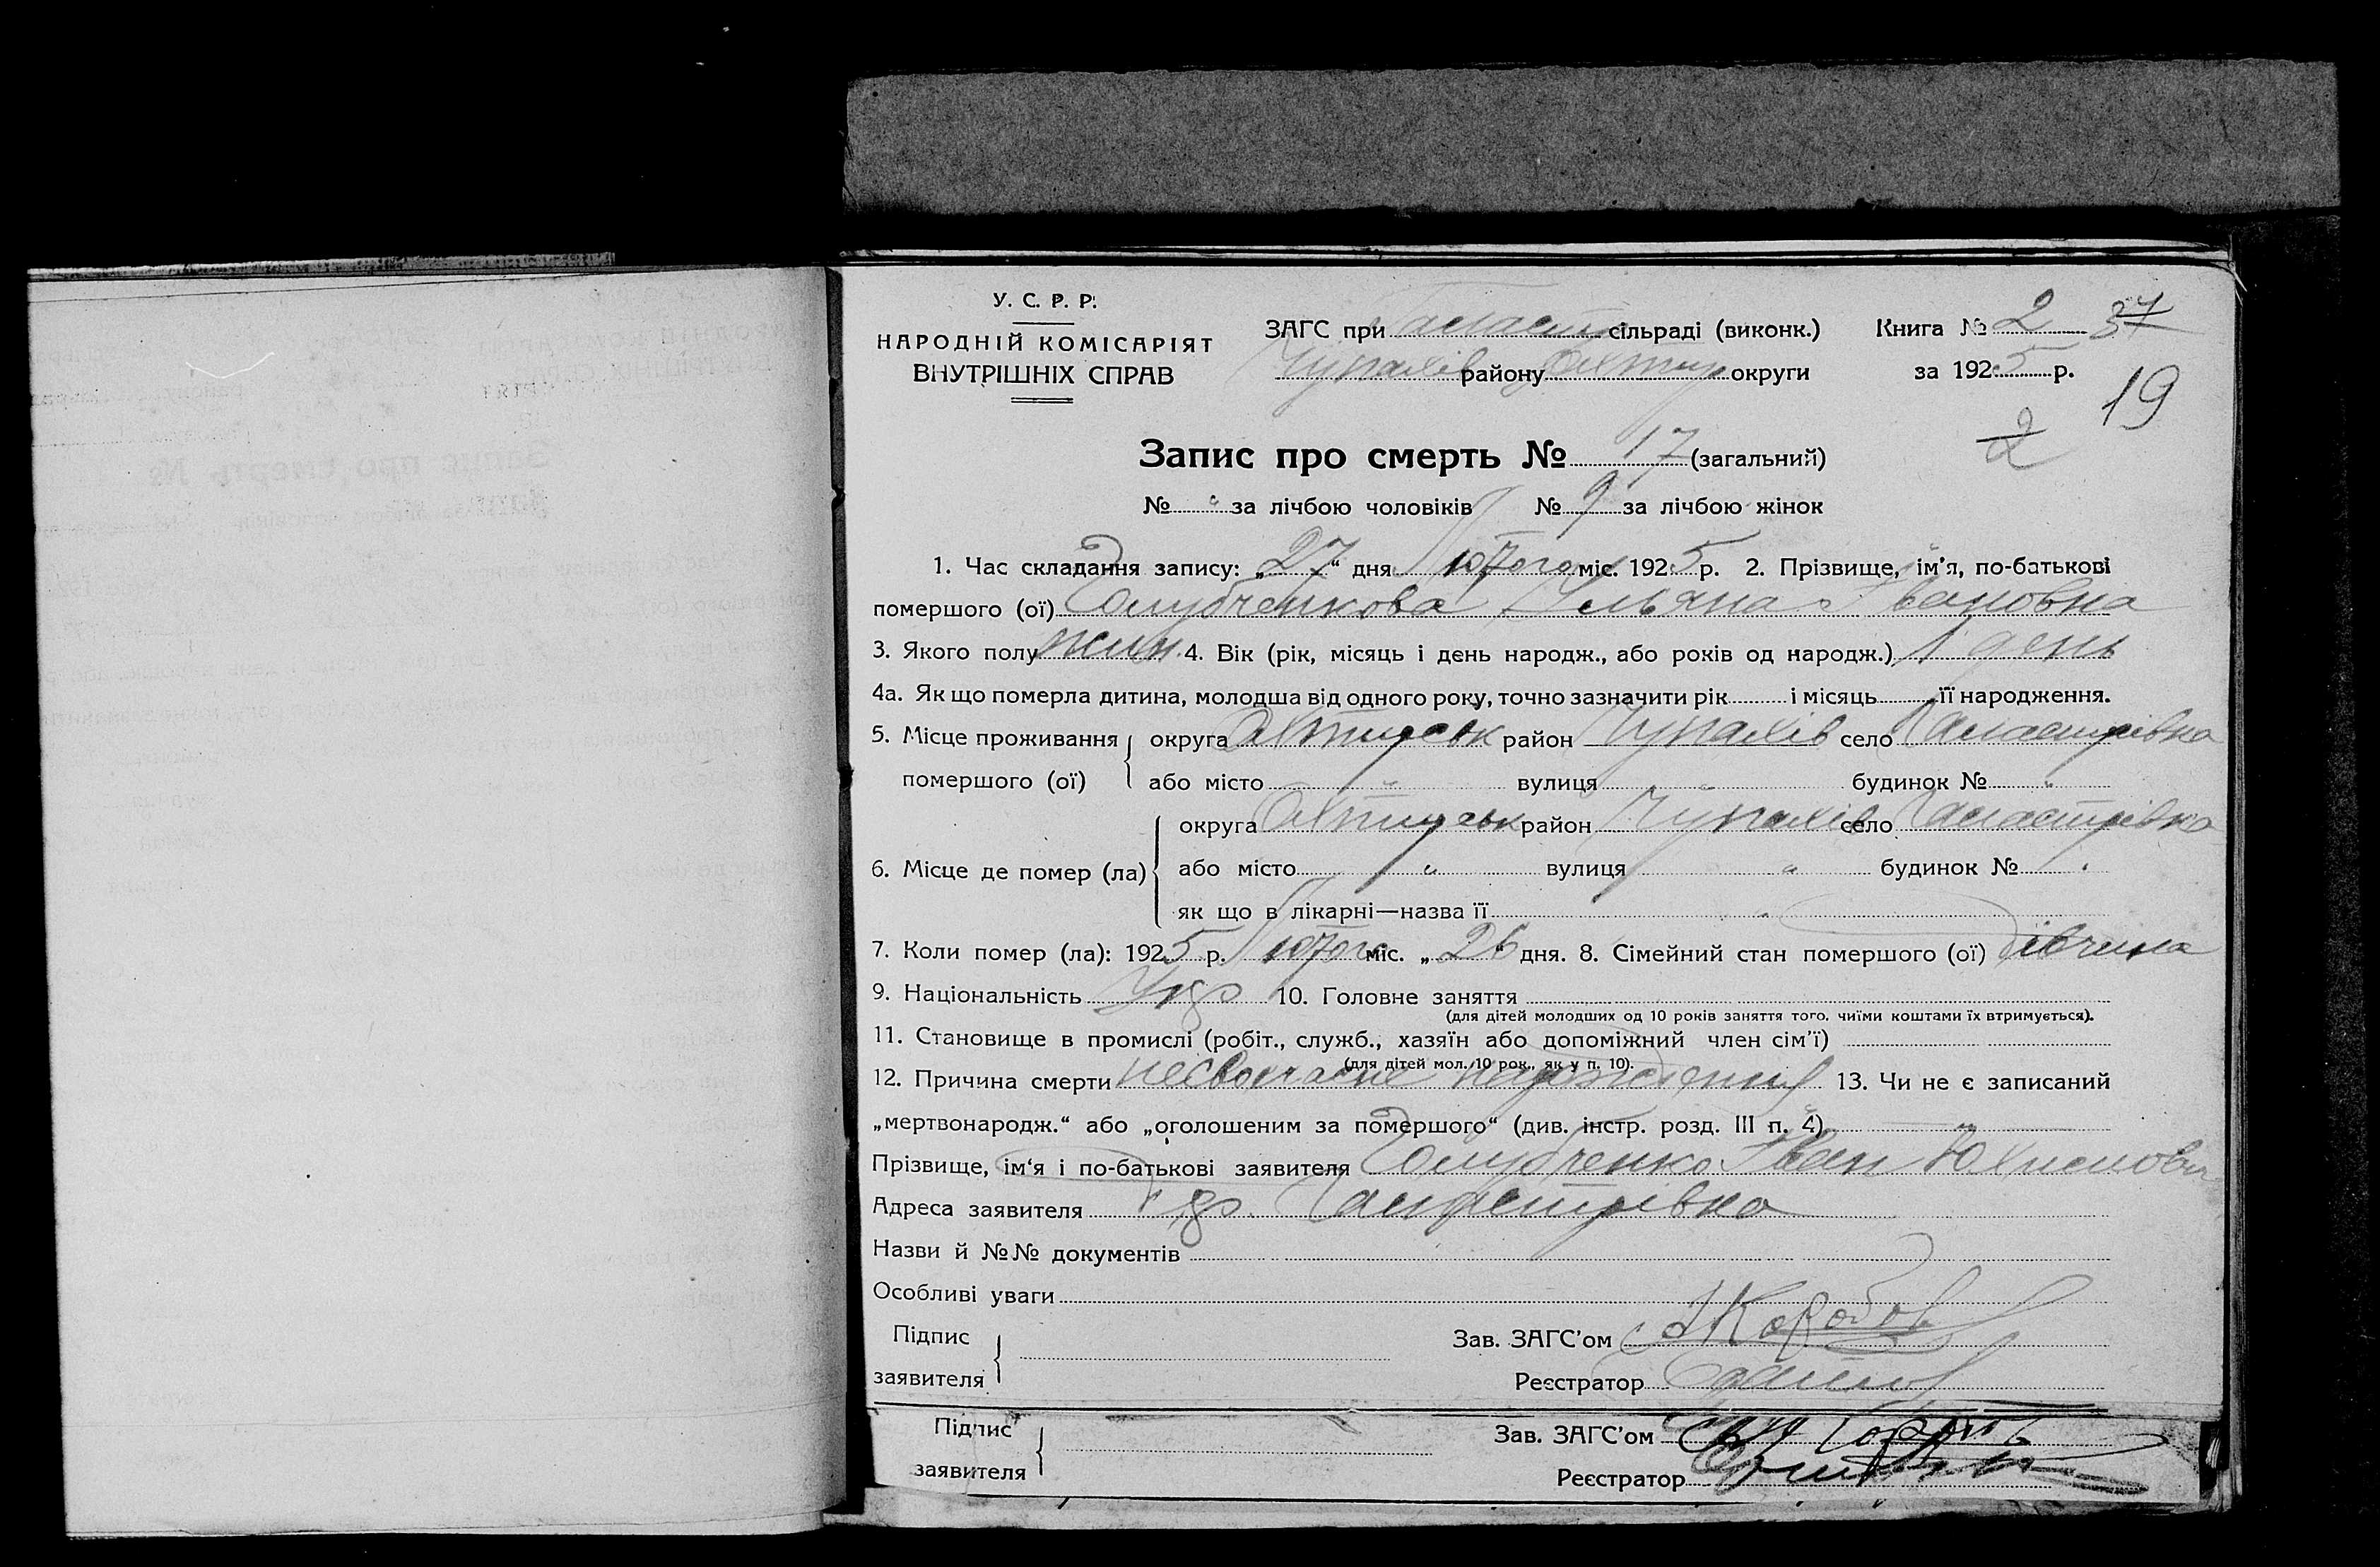 У. С. Р. Р.
НАРОДНІЙ КОМІСАРІЯТ
ВНУТРІШНІХ СПРАВ
ЗАГС при сільраді (виконк.)
Чупахів району Охтир округи
Книга № 2 37
за 1925 р.
19
2
Запис про смерть № 17 (загальний)
№ " за лічбою чоловіків № 9 за лічбою жінок
1. Час складання запису: „27“ дня Лютого міс. 1925 р. 2. Прізвище, ім'я, по-батькові
помершого (ої) Голубченкова Ульяна Івановна
3. Якого полу жин. 4. Вік (рік, місяць і день народж., або років од народж.) 1 день
4а. Як що померла дитина, молодша від одного року, точно зазначити рік і місяць її народження.
5. Місце проживання округа Охтирськ район Чупахів село
помершого (ої) або місто " вулиця " будинок № "
округа Охтирськ район Чупахів село
6. Місце де помер (ла) або місто " вулиця " будинок № "
як що в лікарні—назва її "
7. Коли помер (ла): 1925 р. Лютого міс. „26“ дня. 8. Сімейний стан помершого (ої) дівчина
9. Національність Укр 10. Головне заняття
(для дітей молодших од 10 років заняття того, чиїми коштами їх втримується).
11. Становище в промислі (робіт., служб., хазяїн або допоміжний член сім'ї)
(для дітей мол. 10 рок., як у п. 10).
12. Причина смерти несвоичасне народження 13. Чи не є записаний
„мертвонародж.“ або „оголошеним за помершого“ (див. інстр. розд. III п. 4)
Прізвище, ім'я і по-батькові заявителя Голубченко Иван Юхимови
Адреса заявителя
Назви й №№ документів
Особливі уваги
Підпис
заявителя
Зав. ЗАГС'ом
Реєстратор
Підпис
заявителя
Зав. ЗАГС'ом
Реєстратор